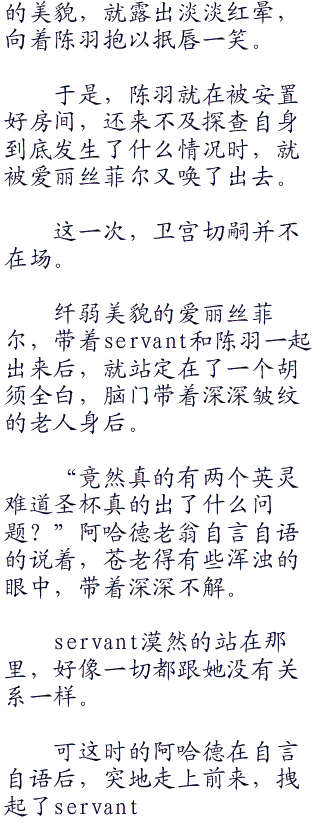 的美貌，就露出淡淡红晕，
向着陈羽抱以抿唇一笑。
于是，陈羽就在被安置
好房间，还来不及探查自身
到底发生了什么情况时，就
被爱丽丝菲尔又唤了出去。
这一次，卫宫切嗣并不
在场。
纤弱美貌的爱丽丝菲
尔，带着servant和陈羽一起
出来后，就站定在了一个胡
须全白，脑门带着深深皱纹
的老人身后。
“竟然真的有两个英灵
难道圣杯真的出了什么问
题？”阿哈德老翁自言自语
的说着，苍老得有些浑浊的
眼中，带着深深不解。
servant漠然的站在那
里，好像一切都跟她没有关
系一样。
可这时的阿哈德在自言
自语后，突地走上前来，拽
起了servant